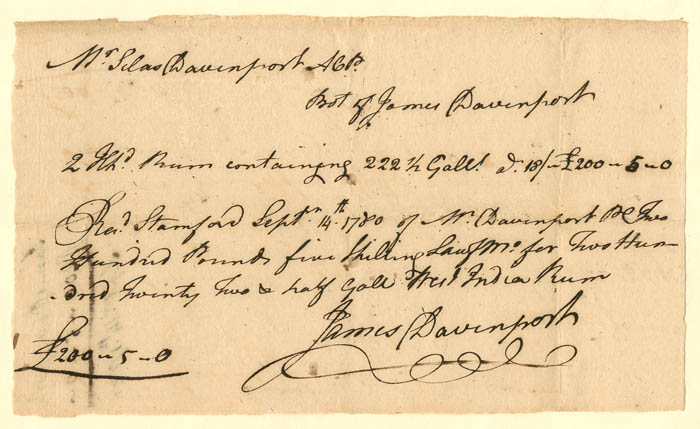 Mr Silas Davenport ACP.
Bot of James Davenport
2 Hhd Rum containing 222 ½ Galls. a. 18/ ~ £200 ~ 5 ~ 0
Recd Stamford Septr 14th 1780 of Mr. Davenport ACP Two
Hundred Pounds five Shilling Lawf Mo for Two Hun
-dred Twenty Two & half Gall West India Rum
James Davenport
£200 ~ 5 ~ 0